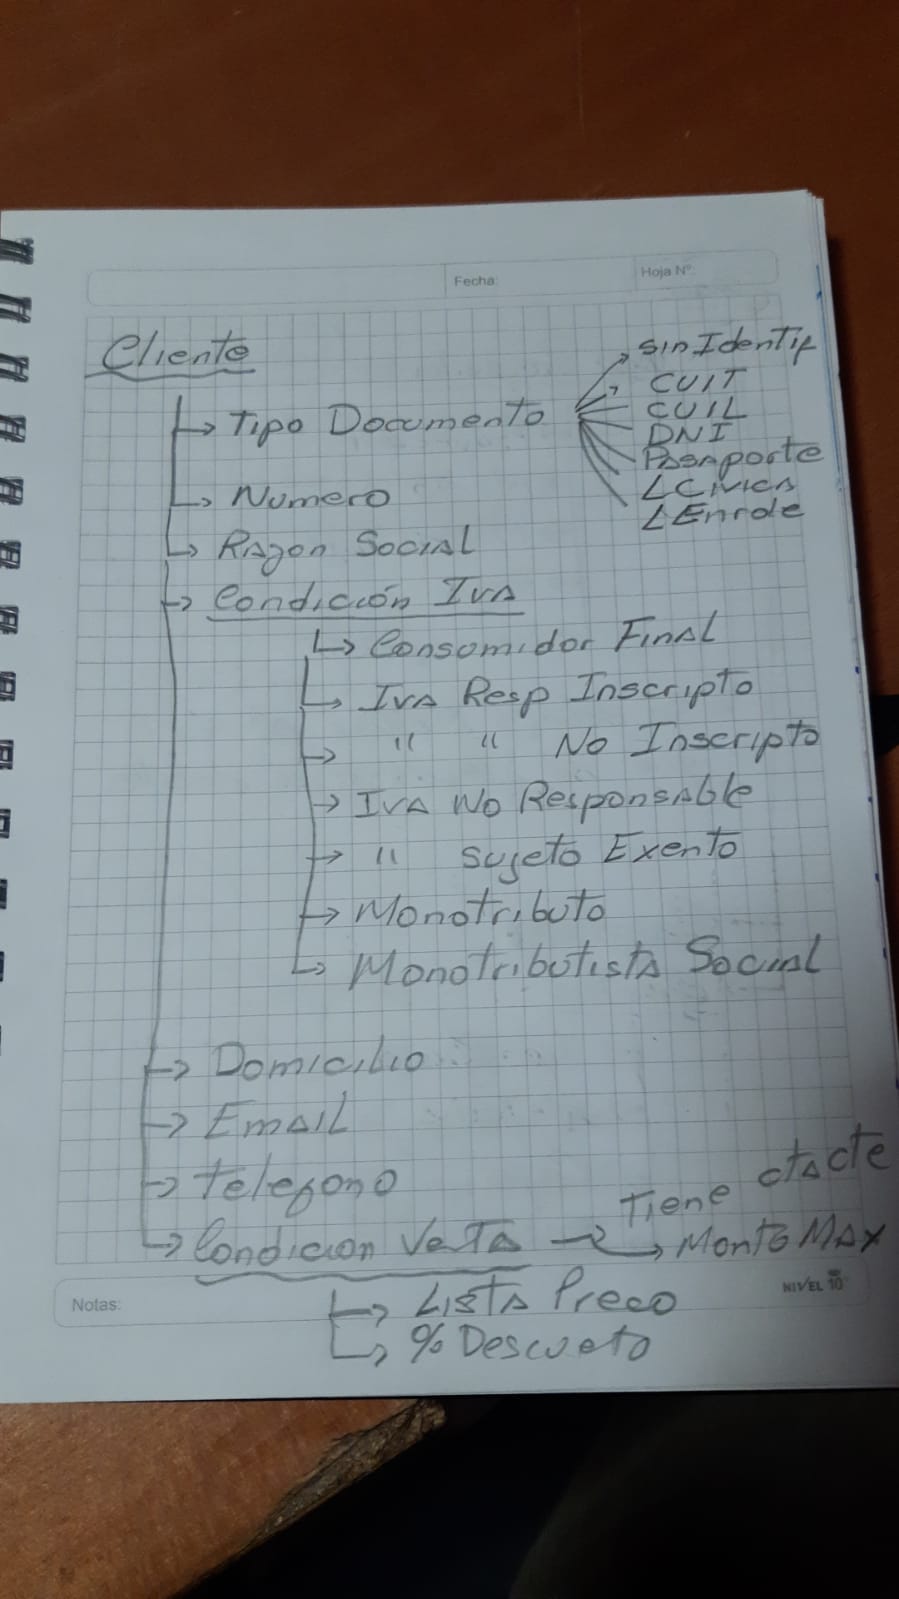 Fecha:
Hoja Nº:
Cliente
→ Tipo Documento
sin Identif
CUIT
CUIL
DNI
Pasaporte
L Civica
L Enrole
→ Numero
→ Razon Social
→ Condición Iva
→ Consumidor Final
→ Iva Resp Inscripto
→ " " No Inscripto
→ Iva No Responsable
→ " Sujeto Exento
→ Monotributo
→ Monotributista Social
→ Domicilio
→ Email
→ Telefono
→ Condicion VeTa → Tiene ctacte
→ Monto Max
Notas:
NIVEL 10
→ Lista Preco
→ % Descueto